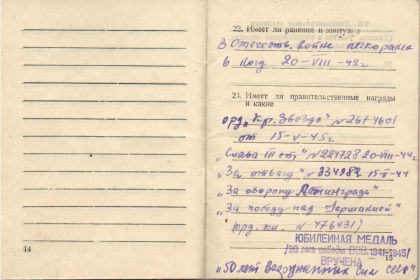 22. Имеет ли ранения и контузии
В Отечеств. войне
в ногу 20-VIII-42г
21. Имеет ли правительственные награды
и какие
орд. „Кр. Звезда" №2674601
от 15-V-45г.
„Слава III ст" №224728 20-VIII-44г
„За отвагу" №334982 15-II-44
„За оборону Ленинграда"
„За победу над Германией"
(орд. кн. №476431)
ЮБИЛЕЙНАЯ МЕДАЛЬ
/20 лет победы ВОВ. 1941-1945/
ВРУЧЕНА
14
15
„50 лет вооруженных сил СССР"